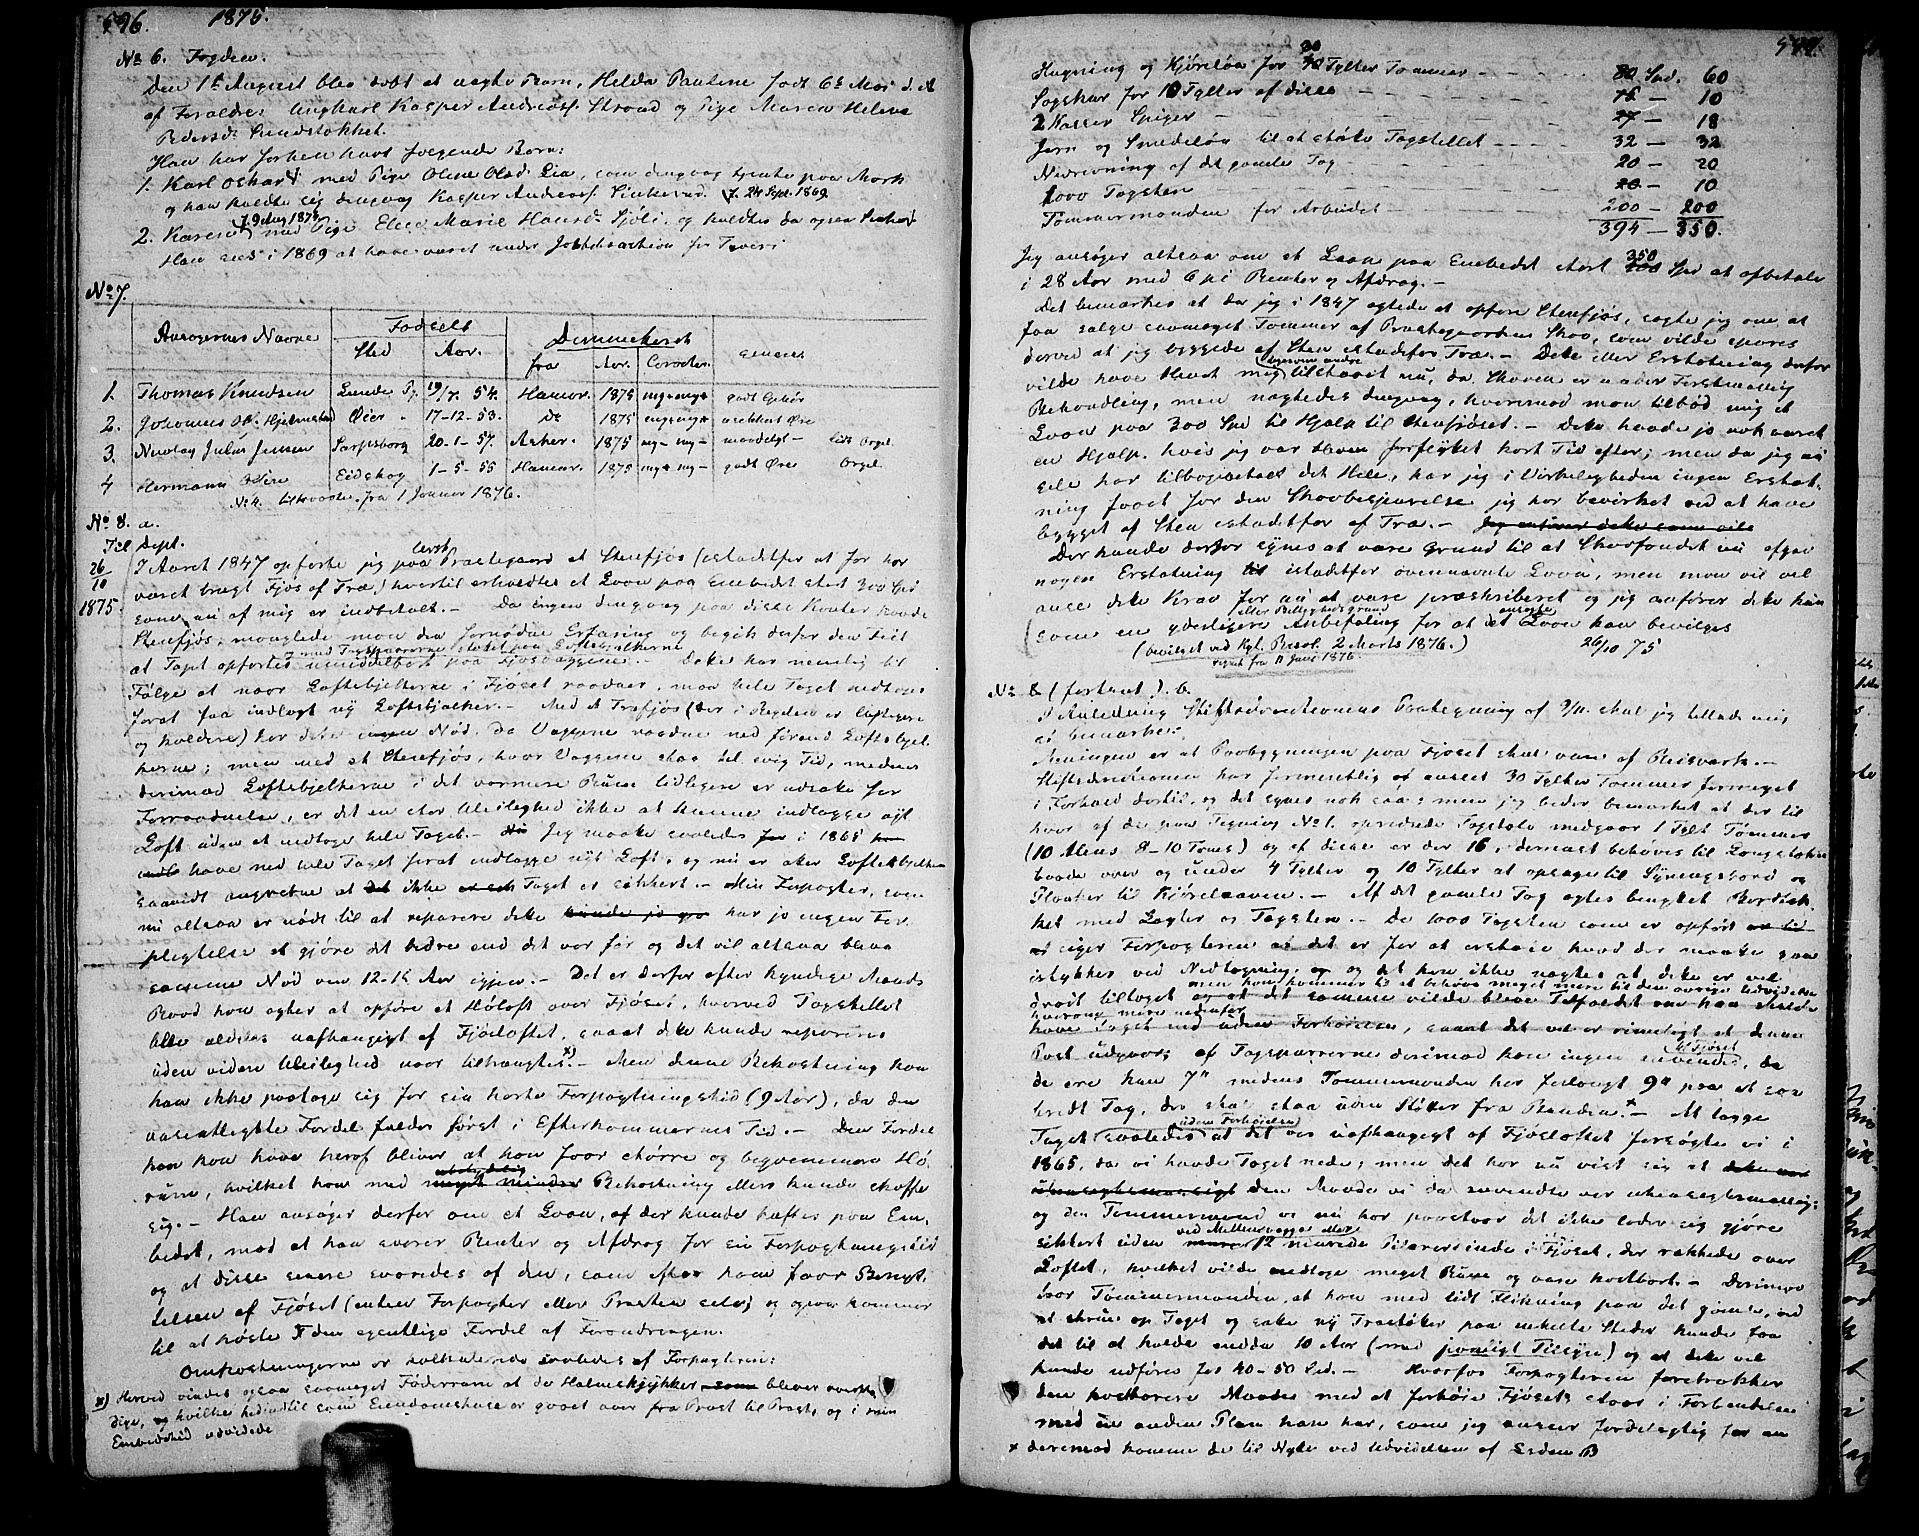 596. 1875.
No 6. Fogden.
Den 1ste August blev døbt et uægte Barn, Helda Pauline født 6te Mai d. A.
af Forældre: Ungkarl Kasper Andreass. Straad og Pige Maren Helene
Pedersd:
Han har forhen havt følgende Børn:
1. Karl Oskar med Pige Oline Olsd. Lia, som dengang tjente paa Mork
og han kaldte sig dengang Kasper Andreass. f. 24 Sept. 1869
2. Karen f. 9 Aug 187 med Pige Elise Marie Hansd. og kaldtes da ogsaa
Han sees i 1869 at have været under for Tyveri
No 7.
Ansøgernes Navne Fødsels Dimmiteret
Sted Aar. fra Aar. Caracter.
1. Thomas Knudsen Lunde Pg. 19/7. 54. Hamar. 1875 mg+ mg+ godt Gehør
2. Johannes Hjelmstad Øier 17-12-53. do 1875 Øre
3. Nicolay Julius Jensen Sarpsborg 20-1-57. Asker. 1875 mg- mg- maadeligt lidt Orgel
4 Hermann Eidskog 1-5-55 Hamar. 1875 mg+ mg- godt Øre Orgel
No 4. tiltraadte fra 1 Januar 1876.
No 8. a.
Til Dept.
26/10 1875. I Aaret 1847 opførte jeg paa Præstegaard et Stenfjøs (istedetfor at før har
været brugt Fjøs af Træ) hvortil erholdtes et Laan paa Embedet stort 300 Spd
som nu af mig er indbetalt. - Da ingen dengang paa disse Kanter havde
Stenfjøs, manglede man den fornødne Erfaring og begik derfor den Feil
at Taget opførtes umiddelbart paa Fjøsvæggene. - Dette har nemlig til
Følge at naar Loftsbjelkerne i Fjøset raadner, maa hele Taget nedtages
forat faa indlagt ny Loftsbjelker. - Med et Træfjøs (der i Regelen er luftigere
og koldere) har dette ingen Nød, da Væggene raadne ned førend Loftsbjel-
kerne; men med et Stenfjøs, hvor Væggene staa til evig Tid, medens
derimod Loftsbjelkerne i det varmere Rum tidligere er udsatte for
Forraadnelse, er det en stor Uleilighed ikke at kunne indlægge nyt
Loft uden at nedtage hele Taget. - Jeg maatte saaledes i 1865
have ned hele Taget forat indlægge nyt Loft, og nu er atter Loftsbjelkerne
saavidt angrebne at ikke Taget er sikkert. - Min Forpagter, som
nu altsaa er nødt til at reparere dette har jo ingen For-
pligtelse at gjøre det bedre end det var før og det vil altsaa blive
samme Nød om 12-15 Aar igjen. - Det er derfor efter kyndige Mænds
Raad han agter at opføre et Høloft over Fjøset, hvorved Tagstellet
blev aldeles uafhængigt af Fjøsloftet, saaat dette kunde repareres
uden videre Uleilighed naar tiltrængtes x). - Men denne Bekostning kan
han ikke paatage sig for sin korte Forpagtningstid (9 Aar), da den
væsentligste Fordel falder først i Efterkommernes Tid. - Den Fordel
han kan have heraf bliver at han faar større og begvemmere Hø-
rum, hvilket han med ubetydelig Bekostning ellers kunde skaffe
sig. - Han ansøger derfor om et Laan, af der kunde hæftes paa Em-
bedet, mod at han svarer Renter og Afdrag for sin Forpagtningstid
og at disse senere svaredes af den, som efter ham faar Benyt-
telsen af Fjøset (enten Forpagter eller Præsten selv) og ogsaa kommer
til at høste den egentlige Fordel af Forandringen.
Omkostningerne er kalkulerede saaledes af Forpagteren:
x) Herved vindes ogsaa saameget Føderrum at de bliver overflø-
dige, og hvilke hidindtil som Eiendomshuse er gaaet over fra Præst til Præst, og i min
Embedstid udvidede
597.
Hugning og Kjørsløn for 30 Tylter Tømmer - - - - 80 Spd. 60
Sagskur for 10 Tylter af disse - - - - 15 - 10
2 Kasser Spiger - - - 27 - 18
Jern og Smedeløn til at støtte Tagstellet - - - - 32 - 32
Nedrivning af det gamle Tag - - - 20 - 20
1000 Tagsten - - - 20 - 10
Tømmermanden for Arbeidet - - - 200 - 200
394 - 350.
Jeg ansøger altsaa om et Laan paa Embedet stort 350 Spd at afbetale
i 28 Aar med 6 pCt Renter og Afdrag. -
Det bemærkes at da jeg i 1847 agtede at opføre Stenfjøs, søgte jeg om at
faa sælge saameget Tømmer af Præstegaardens Skov, som vilde spares
derved at jeg byggede af Sten istedetfor Træ. - Dette eller Erstatning derfor
vilde have blevet mig ligesom andre tilstaaet nu, da Skoven er under Forstmæssig
Behandling, men nægtedes dengang, hvorimod man tilbød mig et
Laan paa 300 Spd til Hjælp til Stenfjøset. - Dette havde jo nok været
en Hjælp, hvis jeg var bleven forflyttet kort Tid efter; men da jeg nu
selv har tilbagebetalt det Hele, har jeg i Virkeligheden ingen Erstat-
ning faaet for den Skovbesparelse jeg har bevirket ved at have
bygget af Sten istedetfor af Træ. - Jeg anfører dette som
Der kunde derfor synes at være Grund til at Skovfondet nu afgav
nogen Erstatning istedetfor ovennævnte Laan, men man vil vel
anse dette Krav for nu at være præskriberet og jeg anfører dette kun
(som en yderligere eller Billighedsgrund Anbefaling for at et ansøgte Laan kan bevilges
(bevilget ved Kgl. Resol. 2 Marts 1876.) 26/10 75
regnet fra 11 Juni 1876.
No 8 (fortsat). b.
I Anledning Stiftsdirectionens Paategning af 9/11. skal jeg tillade mig
at bemærke:
Meningen er at Paabygningen paa Fjøset skal være af Reisværk. -
Stiftsdirectionen har formentlig anseet 30 Tylter Tømmer formeget
i Forhold dertil, og det synes nok saa; men jeg beder bemærket at der til
hver af de paa Tegning No 1. opridsede Tagstole medgaar 1 Tylt Tømmer
(10 Alens 8-10 Toms) og af disse er der 16, dernæst behøves til Langstokke
baade over og under 4 Tylter og 10 Tylter at opsage til Syningsbord og
Planker til Kjørelaaven. - Af det gamle Tag agtes benyttet Bordtæk-
ket med Lægter og Tagsten. - De 1000 Tagsten som er opført
siger Forpagteren at det er for at erstatte hvad der maatte gaa
istykker ved Nedtagning, og det kan ikke nægtes at dette er vel
drøit tiltaget men han kommer til at behøve meget mere til den øvrige Udvidelse
hvorom mere nedenfor
have Taget ned uden Forhøielsen, saaat det vel er rimeligt at denne
Post udgaar; af Tagsparrerne derimod kan ingen anvendes til Fjøset, da
de ere kun 7" medens Tømmermanden har forlangt 9" paa et saa
bredt Tag, der skal staa uden Støtter fra Bunden. x - At lægge
Taget saaledes uden Forhøielsen at det var uafhængigt af Fjøsloftet forsøgte vi i
1865, da vi havde Taget nede; men det har nu vist sig at dette var
den Maade vi da anvendte var uhensigtsmæssig;
og den Tømmermand vi nu har paastaar det ikke lader sig gjøre
sikkert uden ved Mellemvægge eller 12 murede Pillarer inde i Fjøset, der rækkede over
Loftet, hvilket vilde medtage meget Rum og være kostbart. - Derimod
tror Tømmermanden, at han med lidt Flikning paa det gamle, ved
at skrue op Taget og sætte ny Træstøtter paa enkelte Steder kunde faa
det til at holde endda 10 Aar (med jævnligt Tilsyn) og at dette vel
kunde udføres for 40-50 Spd. - Hvorfor Forpagteren foretrækker
den kostbarere Maade med at forhøie Fjøset staar i Forbindelse
med en anden Plan han har, som jeg anseer fordelagtig for en
x derimod komme de til Nytte ved Udvidelsen af Laden B